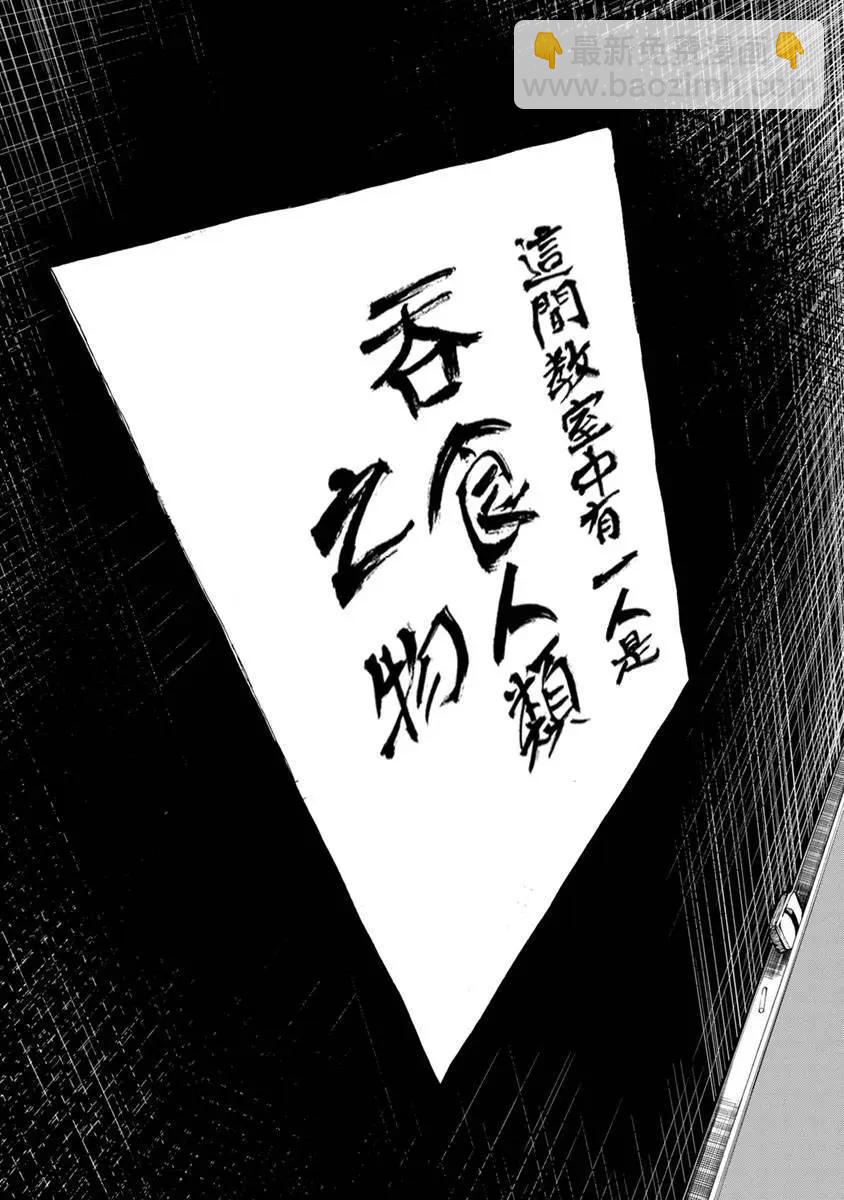 👇最新免費漫画👇
www.baozimh.com
這間教室中有一人是
吞食人類
之物